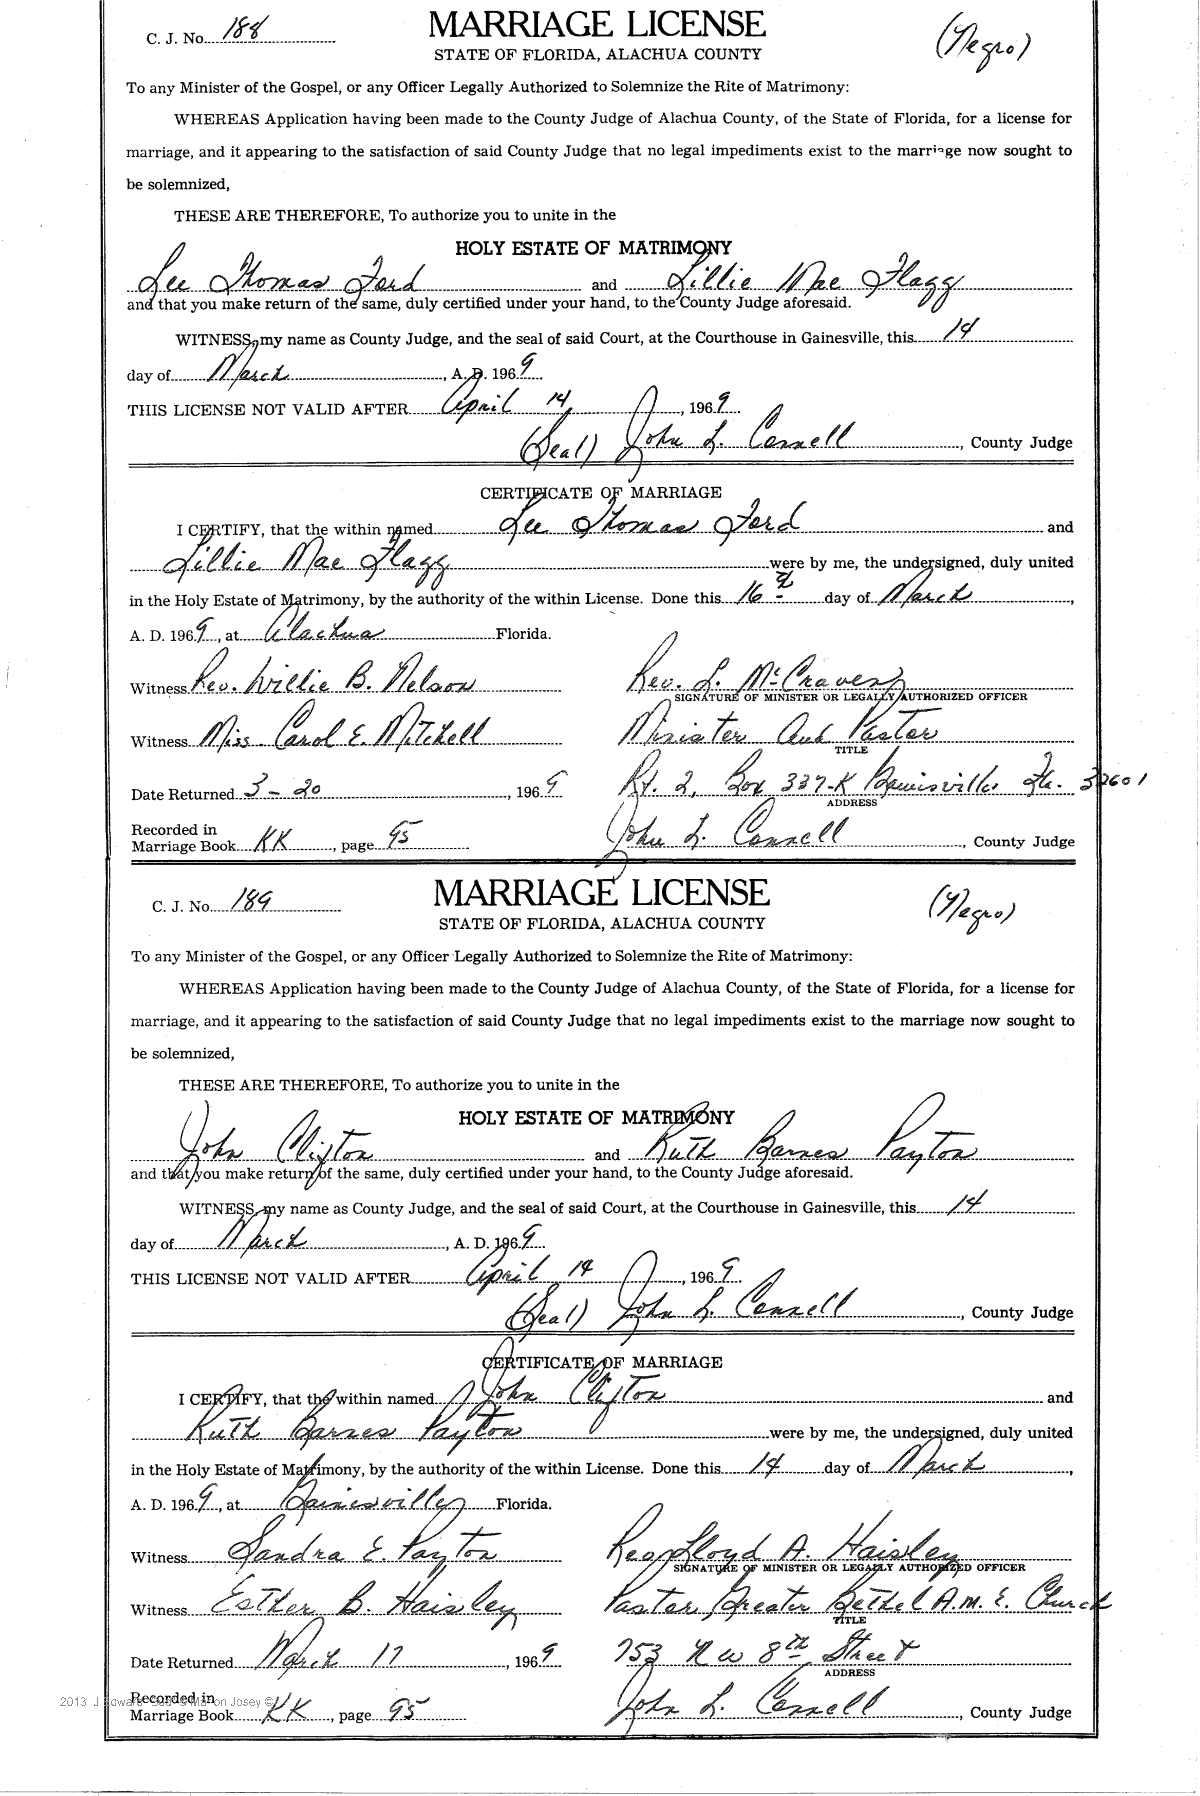 C. J. No. 188
MARRIAGE LICENSE
(Negro)
STATE OF FLORIDA, ALACHUA COUNTY
To any Minister of the Gospel, or any Officer Legally Authorized to Solemnize the Rite of Matrimony:
WHEREAS Application having been made to the County Judge of Alachua County, of the State of Florida, for a license for
marriage, and it appearing to the satisfaction of said County Judge that no legal impediments exist to the marriage now sought to
be solemnized,
THESE ARE THEREFORE, To authorize you to unite in the
HOLY ESTATE OF MATRIMONY
Lee Thomas Ford and Lillie Mae Flagg
and that you make return of the same, duly certified under your hand, to the County Judge aforesaid.
WITNESS, my name as County Judge, and the seal of said Court, at the Courthouse in Gainesville, this 14
day of March, A. D. 1969
THIS LICENSE NOT VALID AFTER April 14, 1969
(Seal) John L. Connell, County Judge
CERTIFICATE OF MARRIAGE
I CERTIFY, that the within named Lee Thomas Ford and
Lillie Mae Flagg were by me, the undersigned, duly united
in the Holy Estate of Matrimony, by the authority of the within License. Done this 16th day of March,
A. D. 1969, at Alachua Florida.
Witness Rev. Willie B. Nelson Rev. L. McCraven
SIGNATURE OF MINISTER OR LEGALLY AUTHORIZED OFFICER
Witness Miss Carol E. Mitchell Minister and Pastor
TITLE
Date Returned 3-20, 1969 Rt. 2, Box 337-K Gainesville Fla. 32601
ADDRESS
Recorded in
Marriage Book KK, page 95 John L. Connell, County Judge
C. J. No. 189
MARRIAGE LICENSE
(Negro)
STATE OF FLORIDA, ALACHUA COUNTY
To any Minister of the Gospel, or any Officer Legally Authorized to Solemnize the Rite of Matrimony:
WHEREAS Application having been made to the County Judge of Alachua County, of the State of Florida, for a license for
marriage, and it appearing to the satisfaction of said County Judge that no legal impediments exist to the marriage now sought to
be solemnized,
THESE ARE THEREFORE, To authorize you to unite in the
HOLY ESTATE OF MATRIMONY
John Clifton and Ruth Barnes Payton
and that you make return of the same, duly certified under your hand, to the County Judge aforesaid.
WITNESS, my name as County Judge, and the seal of said Court, at the Courthouse in Gainesville, this 14
day of March, A. D. 1969
THIS LICENSE NOT VALID AFTER April 14, 1969
(Seal) John L. Connell, County Judge
CERTIFICATE OF MARRIAGE
I CERTIFY, that the within named John Clifton and
Ruth Barnes Payton were by me, the undersigned, duly united
in the Holy Estate of Matrimony, by the authority of the within License. Done this 14 day of March,
A. D. 1969, at Gainesville Florida.
Witness Sandra E. Payton Rev. Lloyd A. Haisley
SIGNATURE OF MINISTER OR LEGALLY AUTHORIZED OFFICER
Witness Esther B. Haisley Pastor Greater Bethel A.M.E. Church
TITLE
Date Returned March 17, 1969 753 NW 8th Street
ADDRESS
Recorded in
Marriage Book KK, page 95 John L. Connell, County Judge
2013 Josey ©